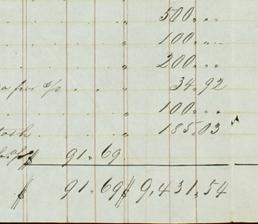 " 500...
" 100...
" 200...
" 34.92
" 100...
" 185.03
91.69
$ 91.69 $ 9,431.54